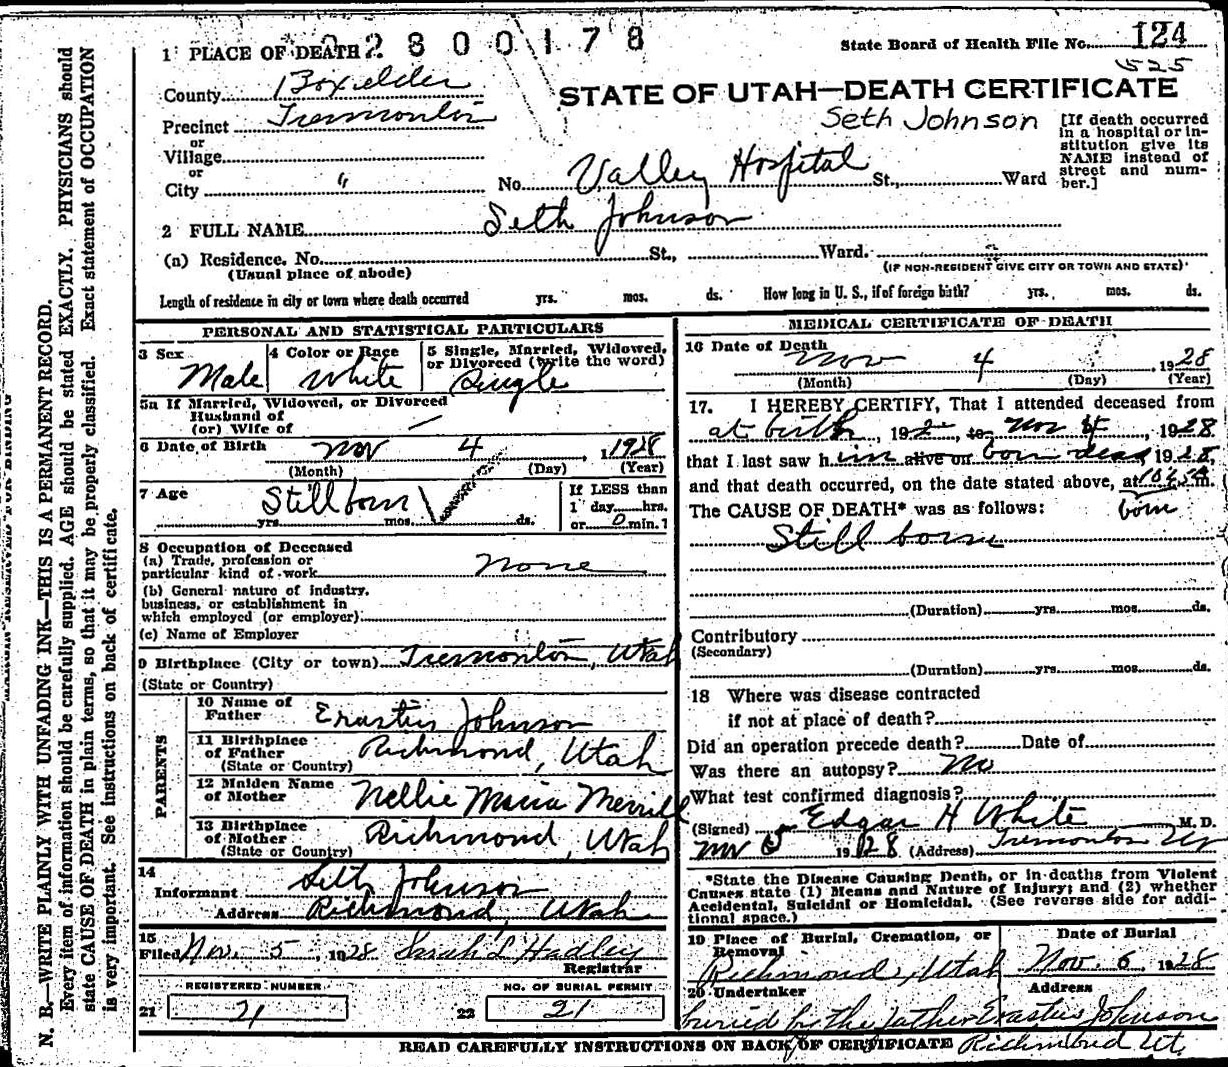 1 PLACE OF DEATH 2800178
State Board of Health File No. 124
525
County Boxelder
STATE OF UTAH—DEATH CERTIFICATE
Precinct Tremonton
Seth Johnson
[If death occurred in a hospital or institution give its NAME instead of street and number.]
or
Village
or
City "
No. Valley Hospital St., Ward
2 FULL NAME Seth Johnson
(a) Residence. No. St., Ward.
(Usual place of abode) (IF NON-RESIDENT GIVE CITY OR TOWN AND STATE)
Length of residence in city or town where death occurred yrs. mos. ds. How long in U. S., if of foreign birth? yrs. mos. ds.
PERSONAL AND STATISTICAL PARTICULARS
3 Sex Male
4 Color or Race White
5 Single, Married, Widowed, or Divorced (write the word) Single
5a If Married, Widowed, or Divorced
Husband of
(or) Wife of —
6 Date of Birth Nov 4, 1928
(Month) (Day) (Year)
7 Age Stillborn
yrs. mos. ds.
If LESS than
1 day hrs.
or 0 min.
8 Occupation of Deceased
(a) Trade, profession or
particular kind of work None
(b) General nature of industry,
business, or establishment in
which employed (or employer)
(c) Name of Employer
9 Birthplace (City or town) Tremonton, Utah
(State or Country)
PARENTS
10 Name of Father Erastus Johnson
11 Birthplace of Father (State or Country) Richmond, Utah
12 Maiden Name of Mother Nellie Maria Merrill
13 Birthplace of Mother (State or Country) Richmond, Utah
14
Informant Seth Johnson
Address Richmond, Utah
15
Filed Nov. 5, 1928 Sarah L Hadley
Registrar
REGISTERED NUMBER
21 21
NO. OF BURIAL PERMIT
22 21
MEDICAL CERTIFICATE OF DEATH
16 Date of Death Nov 4, 1928
(Month) (Day) (Year)
17. I HEREBY CERTIFY, That I attended deceased from
at birth, 192, to Nov 4, 1928
that I last saw him alive on born dead, 1928,
and that death occurred, on the date stated above, at m.
The CAUSE OF DEATH* was as follows: born
Still born
(Duration) yrs. mos. ds.
Contributory
(Secondary)
(Duration) yrs. mos. ds.
18 Where was disease contracted
if not at place of death?
Did an operation precede death? Date of
Was there an autopsy? No
What test confirmed diagnosis?
(Signed) Edgar H White M. D.
Nov 5 1928 (Address) Tremonton Ut
*State the Disease Causing Death, or in deaths from Violent
Causes state (1) Means and Nature of Injury; and (2) whether
Accidental, Suicidal or Homicidal. (See reverse side for additional space.)
19 Place of Burial, Cremation, or Removal
Richmond, Utah
Date of Burial
Nov. 6, 1928
20 Undertaker Address
buried by the father Erastus Johnson
Richmond Ut.
READ CAREFULLY INSTRUCTIONS ON BACK OF CERTIFICATE
N. B.—WRITE PLAINLY WITH UNFADING INK—THIS IS A PERMANENT RECORD.
Every item of information should be carefully supplied. AGE should be stated EXACTLY. PHYSICIANS should
state CAUSE OF DEATH in plain terms, so that it may be properly classified. Exact statement of OCCUPATION
is very important. See instructions on back of certificate.